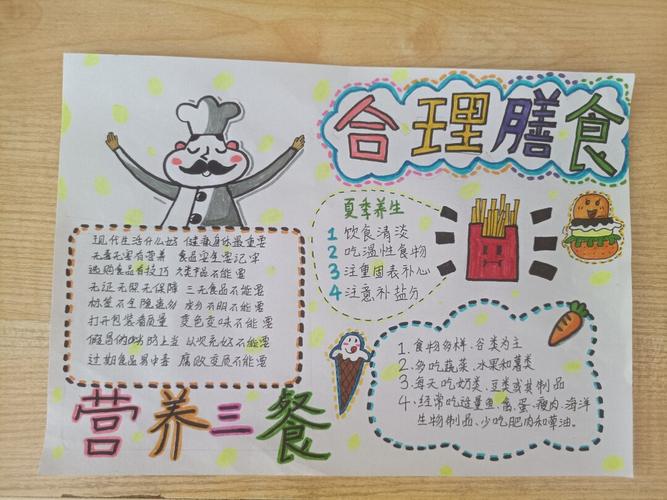 合理膳食
夏季养生
1 饮食清淡
2 吃温性食物
3 注重固表补心
4 注意补盐分
现代生活什么好 健康身体最重要
无毒无害有营养 食品安全要记
选购食品有技巧 不能要
无证无照无保障 三无食品不能要
标签不全隐患多 成分不明不能要
打开包装看质量 变色变味不能要
假冒伪 上当 以次充好不能要
过期食品易中毒 腐败变质不能要
1、食物多样、谷类为主
2、多吃蔬菜、水果和薯类
3、每天吃奶类、豆类或其制品
4、经常吃适量鱼、禽、蛋、瘦肉、海洋
生物制品、少吃肥肉和荤油。
营养三餐